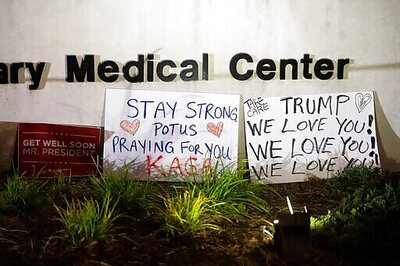 ary Medical Center
GET WELL SOON
MR. PRESIDENT
STAY STRONG
POTUS
PRAYING FOR YOU
KAGA
TAKE CARE
TRUMP
WE LOVE YOU!
WE LOVE YOU!
WE LOVE YOU!